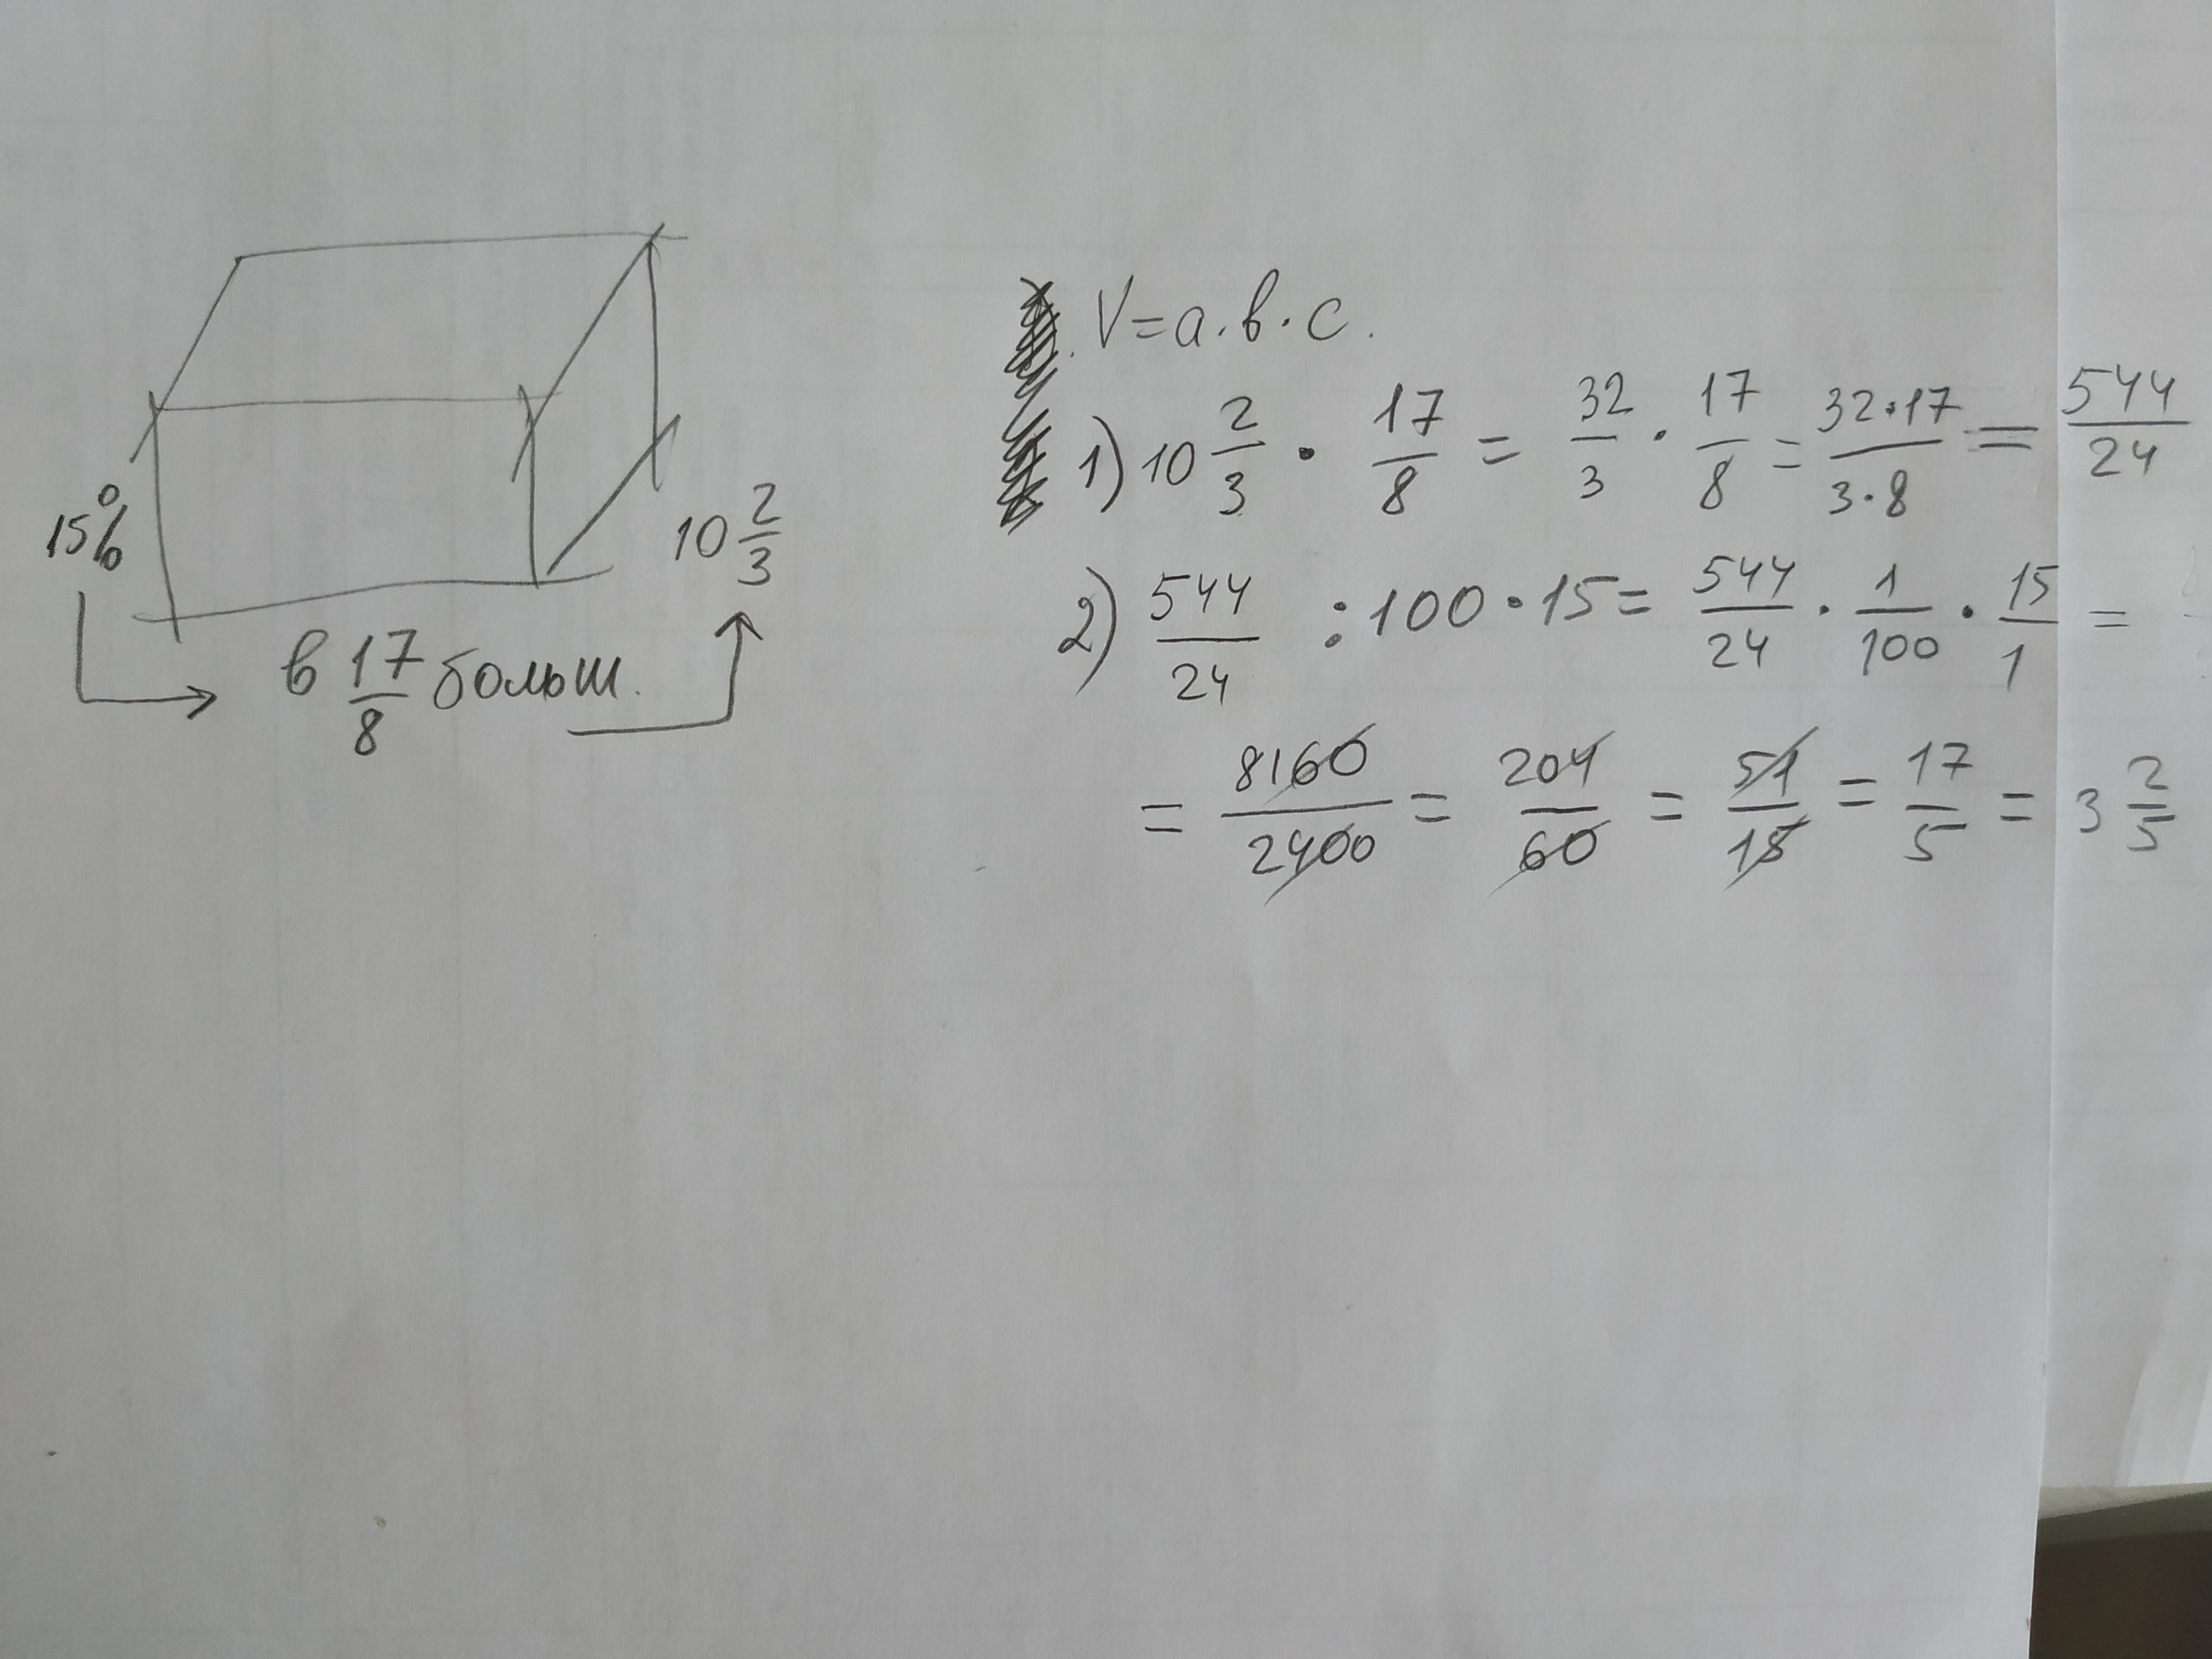 15%
10 2/3
в 17/8 больш.
V=a.b.c.
1) 10 2/3 · 17/8 = 32/3 · 17/8 = 32·17/3·8 = 544/24
2) 544/24 : 100 · 15 = 544/24 · 1/100 · 15/1 =
= 8160/2400 = 204/60 = 51/15 = 17/5 = 3 2/5